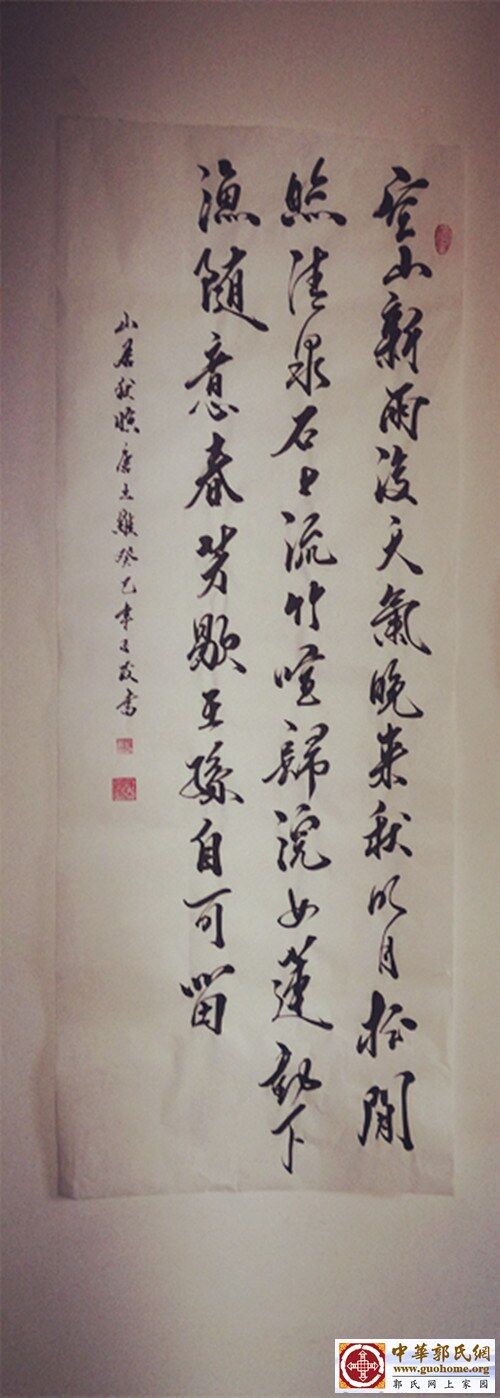 空山新雨後天氣晚来秋明月松間
照清泉石上流竹喧歸浣女蓮動下
漁随意春芳歇王孫自可留
山居秋暝唐王維癸巳年書
中華郭氏網
www.guohome.org
郭氏网上家园